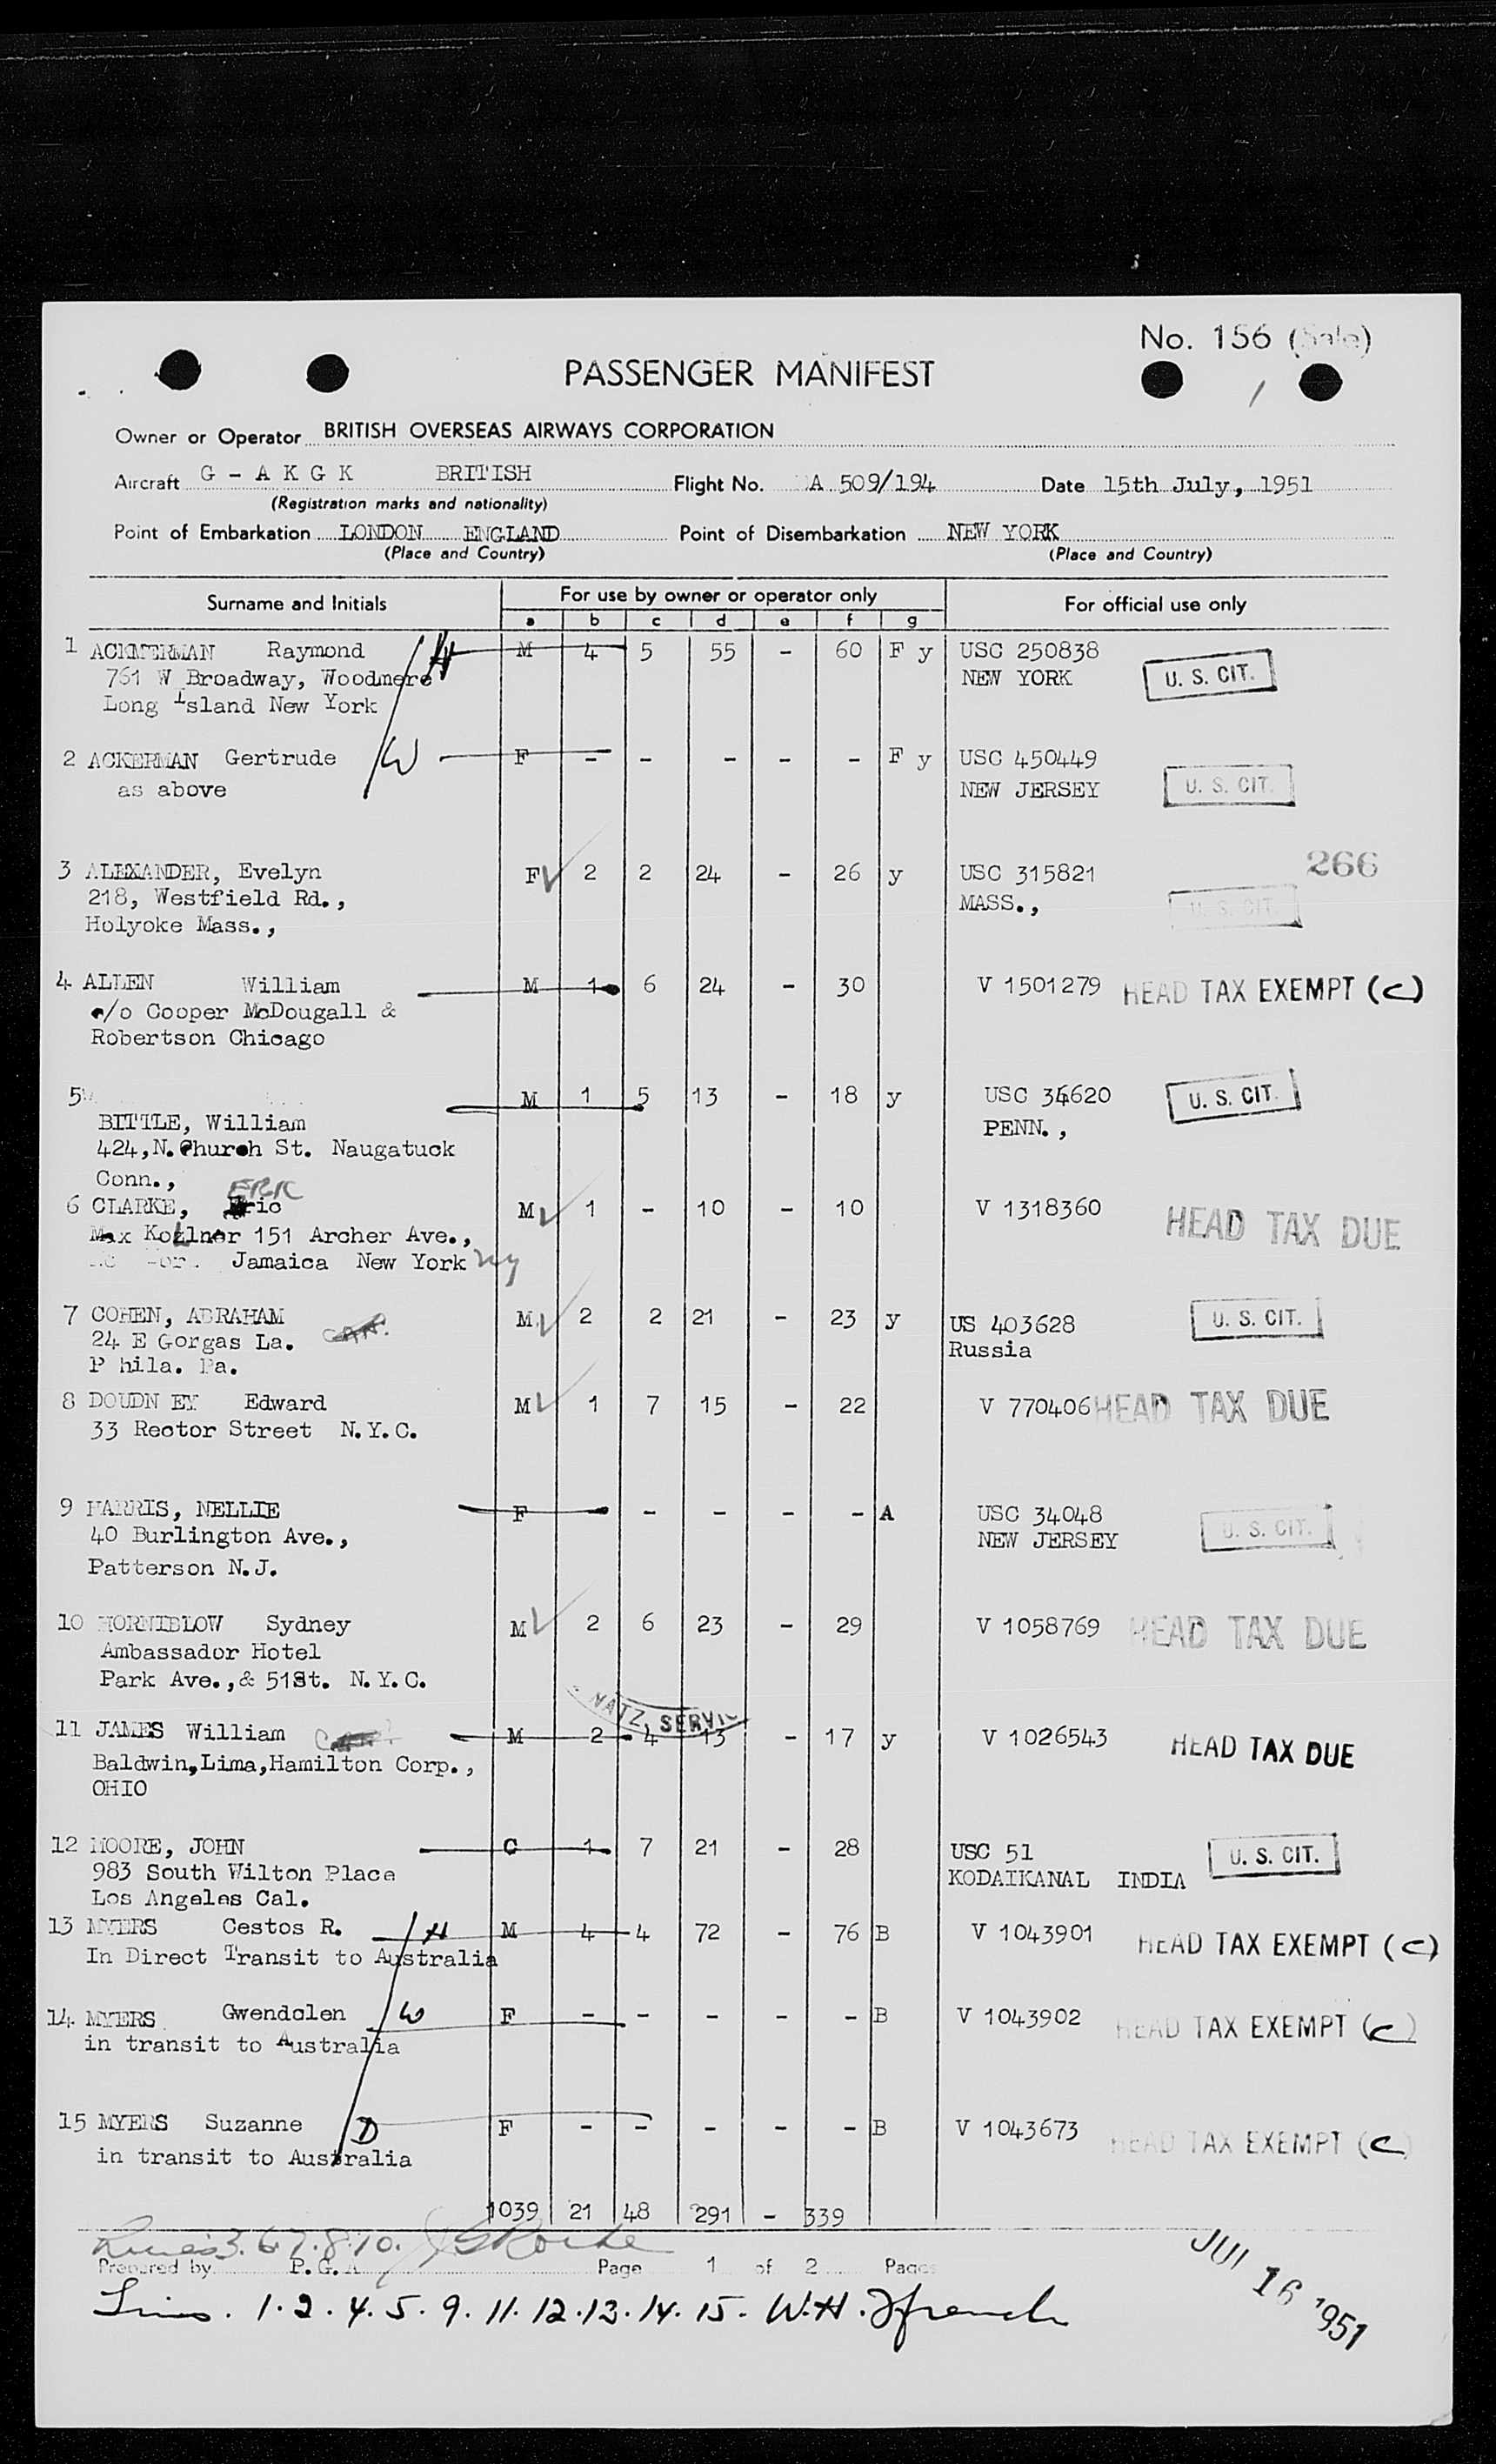 No. 156 (Sale)
PASSENGER MANIFEST
Owner or Operator BRITISH OVERSEAS AIRWAYS CORPORATION
Aircraft G - A K G K BRITISH Flight No. A 509/194 Date 15th July, 1951
(Registration marks and nationality)
Point of Embarkation LONDON ENGLAND Point of Disembarkation NEW YORK
(Place and Country) (Place and Country)
Surname and Initials For use by owner or operator only For official use only
a b c d e f g
1 ACKMERMAN Raymond H M 4 5 55 - 60 F y USC 250838
761 W Broadway, Woodmere NEW YORK U. S. CIT.
Long Island New York
2 ACKERMAN Gertrude W F - - - - - F y USC 450449
as above NEW JERSEY U. S. CIT.
266
3 ALEXANDER, Evelyn F 2 2 24 - 26 y USC 315821
218, Westfield Rd., MASS., U. S. CIT.
Holyoke Mass.,
4 ALLEN William M 1 6 24 - 30 V 1501279 HEAD TAX EXEMPT (C)
c/o Cooper McDougall &
Robertson Chicago
5 M 1 5 13 - 18 y USC 34620 U. S. CIT.
BITTLE, William PENN.,
424,N. Church St. Naugatuck
Conn.,
ERIC
6 CLARKE, Eric M 1 - 10 - 10 V 1318360 HEAD TAX DUE
Max Kollner 151 Archer Ave.,
Jamaica New York ny
7 COHEN, ABRAHAM M 2 2 21 - 23 y US 403628 U. S. CIT.
24 E Gorgas La. CAN. Russia
P hila. Pa.
8 DOUDN EY Edward M 1 7 15 - 22 V 770406 HEAD TAX DUE
33 Rector Street N.Y.C.
9 HARRIS, NELLIE F - - - - - A USC 34048
40 Burlington Ave., NEW JERSEY U. S. CIT.
Patterson N.J.
10 HORNIBLOW Sydney M 2 6 23 - 29 V 1058769 HEAD TAX DUE
Ambassador Hotel
Park Ave.,& 51St. N.Y.C.
NATZ. SERVIC
11 JAMES William M 2 4 13 - 17 y V 1026543 HEAD TAX DUE
Baldwin,Lima,Hamilton Corp.,
OHIO
12 MOORE, JOHN C 1 7 21 - 28 USC 51 U. S. CIT.
983 South Wilton Place KODAIKANAL INDIA
Los Angeles Cal.
13 MYERS Cestos R. H M 4 4 72 - 76 B V 1043901 HEAD TAX EXEMPT (C)
In Direct Transit to Australia
14 MYERS Gwendolen W F - - - - - B V 1043902 HEAD TAX EXEMPT (C)
in transit to Australia
15 MYERS Suzanne D F - - - - - B V 1043673 HEAD TAX EXEMPT (C)
in transit to Australia
1039 21 48 291 - 339
Lines 3.6.7.8.10.
Prepared by P.G.A Page 1 of 2 Pages
Lines. 1.2.4.5.9.11.12.13.14.15. W.H. Ffrench
JUL 16 1951